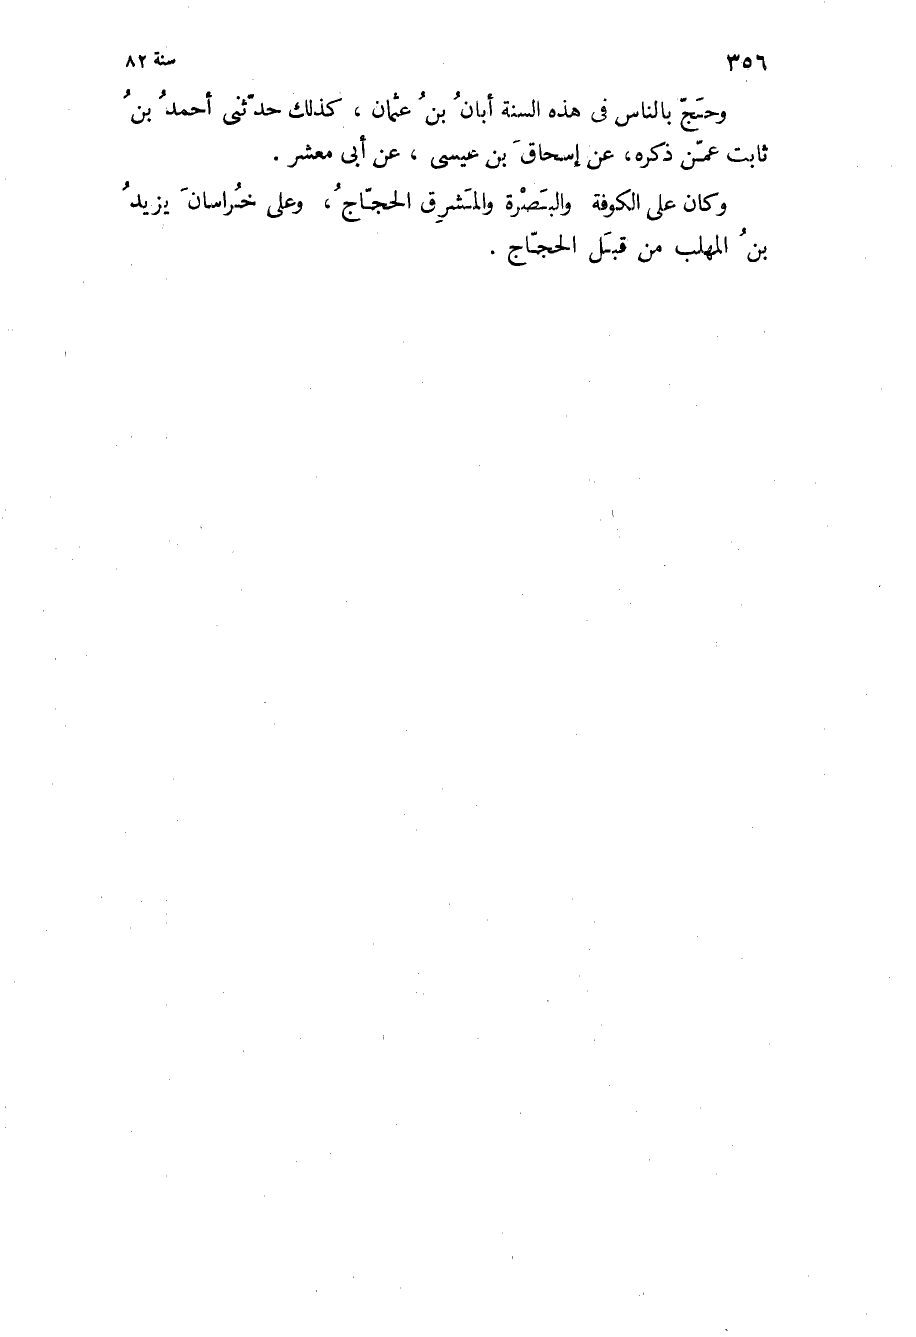 ٣٥٦ سنة ٨٢
وحَجّ بالناس فى هذه السنة أبانُ بنُ عثمان ، كذلك حدّثنى أحمدُ بنُ
ثابت عمّن ذكره، عن إسحاقَ بن عيسى ، عن أبى معشر .
وكان على الكوفة والبَصْرة والمَشرِق الحجّاجُ ، وعلى خُراسانَ يزيدُ
بنُ المهلب من قبَل الحجّاج .